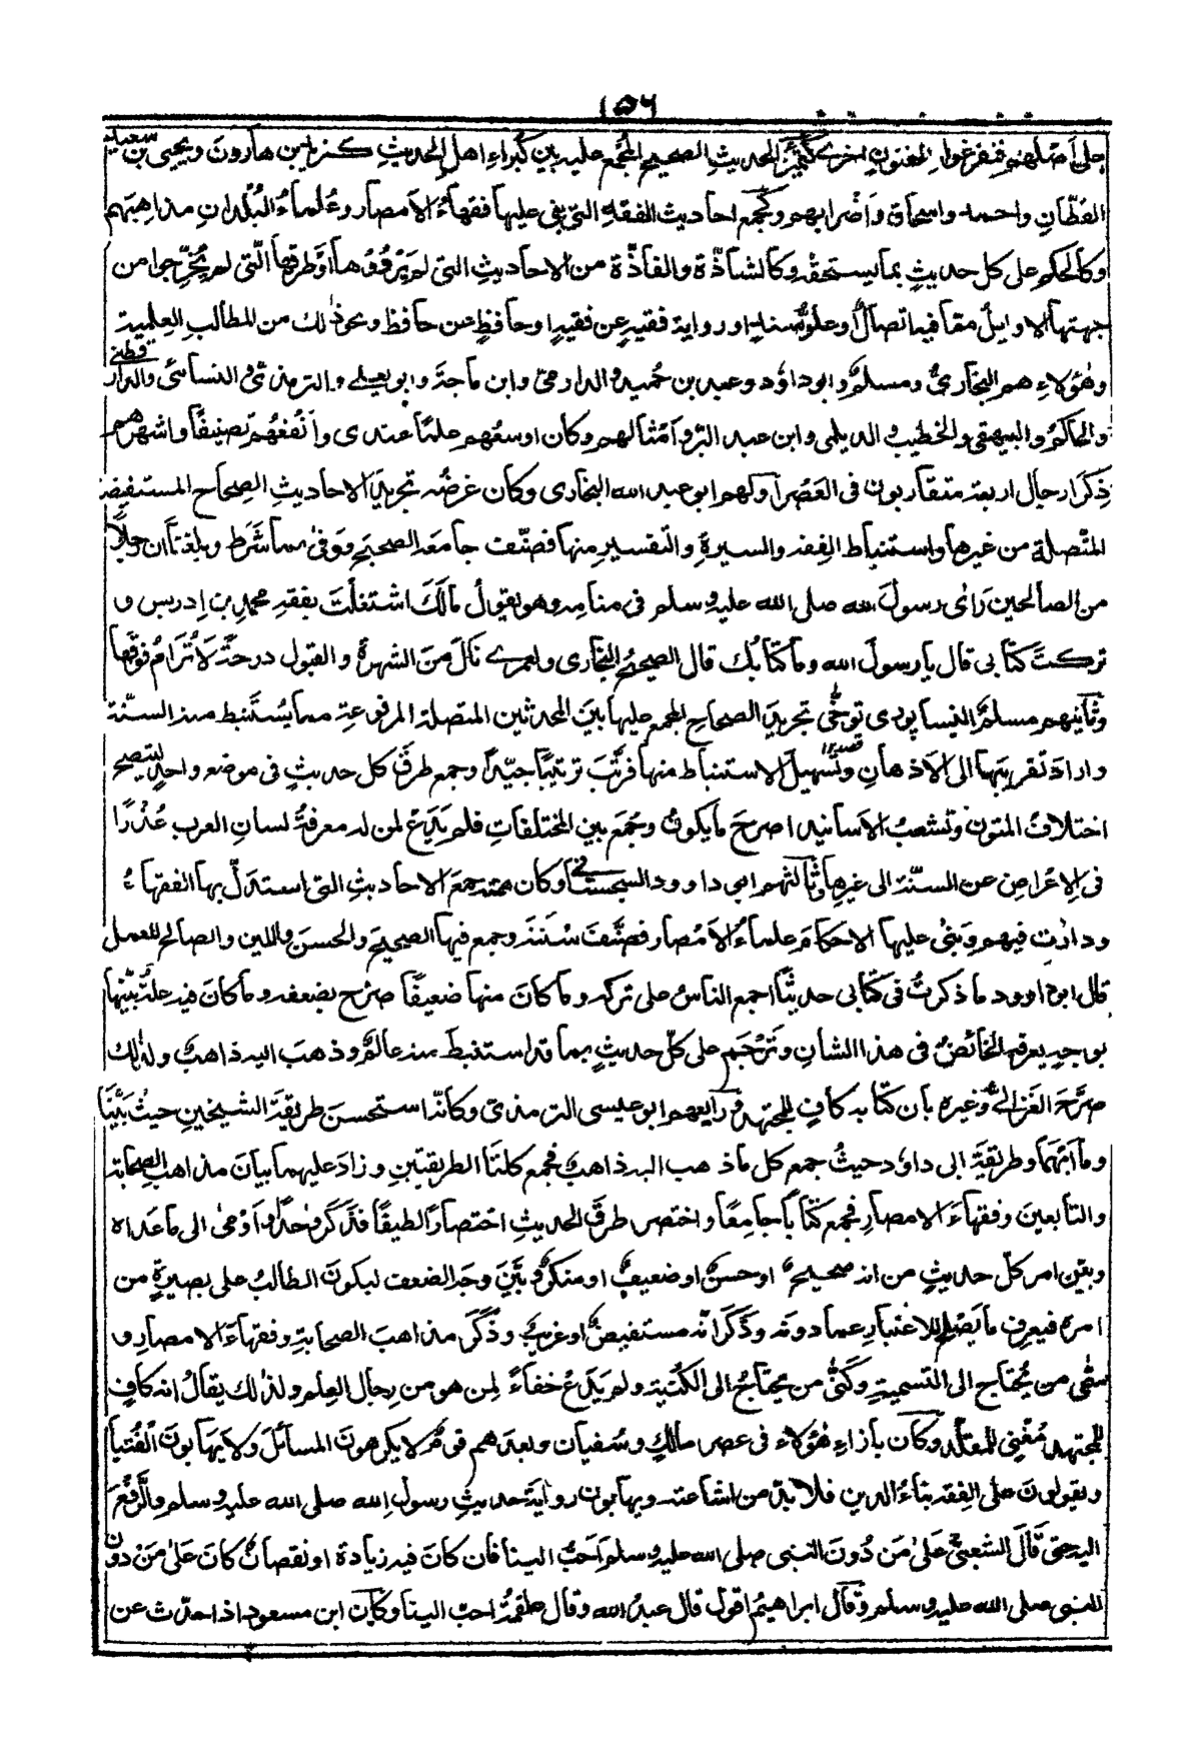 ١٥٦
على أصلهم فتفرغوا لفنون اخرى كتمييز الحديث الصحيح المجمع عليه بين كبراء اهل الحديث كيزيد بن هارون ويحيى بن سعيد
القطّان واحمد واسحاق وأضرابهم وكجمع احاديث الفقه التى بنى عليها فقهاءُ الامصار وعُلماءُ البُلدان مذاهبهم
وكالحكم على كل حديثٍ بما يستحقه وكالشاذّة والفاذّة من الاحاديث التى لم يَرْوُوْها أو طرقها الّتى لم يُخرِّجوا من
جهتها الاوايلُ مما فيه اتصالٌ أو علوُّ سندٍ او رواية فقيهٍ عن فقيهٍ او حافظٍ عن حافظٍ ونحو ذلك من المطالب العلمية
وهٰؤلاء هم البخارىُّ ومسلمٌ وابو داؤد وعبد بن حُميد والدارمىّ وابن ماجةَ وابو يعلى والترمذىّ والنسائىُّ والدارقطنى
والحاكمُ والبيهقى والخطيب والديلمى وابن عبد البرّ وأمثالهم وكان اوسعُهم علمًا عندى وأنْفعُهم تصنيفًا واشهرهم
ذِكرًا رجال اربعة متقاربون فى العَصْر أولهم ابو عبد الله البخارى وكان غرضُه تجريدَ الاحاديثِ الصِحاح المستفيضة
المتّصلة من غيرها واستنباطَ الفِقه والسيرةِ والتفسيرِ منها فصنّف جامعَه الصحيحَ ووفىٰ بما شَرَط وبلغنا أن رجلًا
من الصالحين رَأى رسولَ الله صلى الله عليه وسلم فى منامه وهو يقول مالَكَ اشتغلتَ بفقهِ محمدِ بن إدريس و
تركتَ كتابى قال يا رسولَ الله وما كتابُك قال الصحيحُ البخارى ولعمرى نَالَ مِنَ الشهرةِ والقبول درجةً لا تُرَامُ فوقَها
وثانيهم مسلمٌ النيسابورى توخَّى تجريدَ الصحاحِ المجمع عليها بينَ المحدثين المتصلة المرفوعة مما يُستَنبط منه السنّة
واراد تقريبَها الى الأذهانِ وتسهيلَ الاستنباط منها فرتَّبَ ترتيبًا جيّدًا وجمع طرقَ كل حديثٍ فى موضعٍ واحدٍ ليتضح
اختلافُ المتونِ وتشعبُ الأسانيد اصرحَ ما يكونُ وجَمَع بين المختلفاتِ فلم يَدَعْ لمن له معرفةُ لسانِ العرب عُذْرًا
فى الإعراضِ عن السنّة الى غيرِها وثالثهم ابو داوود السجستانى وكان همته جمعَ الاحاديثِ التى استدلّ بها الفقهاءُ
ودارت فيهم وبنىٰ عليها الاحكامَ علماءُ الأمْصار فصَنَّفَ سُنَنَه وجمع فيها الصحيحَ والحسنَ واللينَ والصالح للعمل
قال ابو داوود ما ذكرتُ فى كتابى حديثًا اجمع الناسُ على تركه وما كانَ منها ضعيفًا صرّح بضعفه وما كانَ فيه علةٌ بيّنها
بوجهٍ يعرفه الخائضُ فى هذا الشان وتَرْجَم على كلّ حديثٍ بما قد استنبطَ منه عالمٌ وذهبَ اليه ذاهبٌ ولذلك
صَرَّحَ الغزالىُّ وغيره بأن كتابه كافٍ للمجتهد ورابعهم ابو عيسى الترمذىّ وكأنّه استحسن طريقةَ الشيخينِ حيثُ بيَّنا
وما أبهَما وطريقةَ ابى داؤد حيثُ جمع كل ما ذهب اليه ذاهبٌ فجمع كلتَا الطريقتينِ وزادَ عليهما بيانَ مذاهبِ الصحابة
والتابعينَ وفقهاءَ الامصارِ فجمع كتابًا جامعًا واختصر طرقَ الحديثِ اختصارًا لطيفًا فذَكَر واحدًا وأوْمىٰ الى ما عَداه
وبيّن امر كلّ حديثٍ من انه صحيحٌ او حسنٌ او ضعيفٌ او منكرٌ وبَيَّنَ وجهَ الضعف ليكونَ الطالبُ على بصيرةٍ من
امره فيعرف ما يَصْلح للاعتبارِ عما دونه وذَكَرَ انّه مستفيضٌ او غريبٌ وذَكَرَ مذاهبَ الصحابةِ وفقهاءَ الامصارِ و
سَمّٰى من يُحتاج الى التسميةِ وكَنّٰى من يحتاجُ الى الكُنْيةِ ولم يَدَعْ خفاءً لمن هو من رجال العلم ولذٰلك يقالُ انه كافٍ
للمجتهد مُغْنِى للمقلّد وكان بأزاءِ هٰؤلاء فى عصر مالكٍ وسُفيان وبعدهم قومٌ لا يكرهونَ المسائلَ ولا يهابونَ الفُتيا
ويقولونَ على الفِقه بناءُ الدين فلا بدّ من اشاعته ويهابون رواية حديثِ رسولِ الله صلى الله عليه وسلم والرَّفْعَ
اليه حتى قال الشعبىُّ علىٰ مَن دُونَ النبى صلى الله عليه وسلم أحبُّ الينا فان كانَ فيه زيادة او نقصانٌ كانَ علىٰ مَنْ دونَ
النبى صلى الله عليه وسلم وقال ابراهيمُ اقول قال عبدُ الله وقال علقمةُ احبّ الينا وكان ابن مسعود اذا حدّث عن